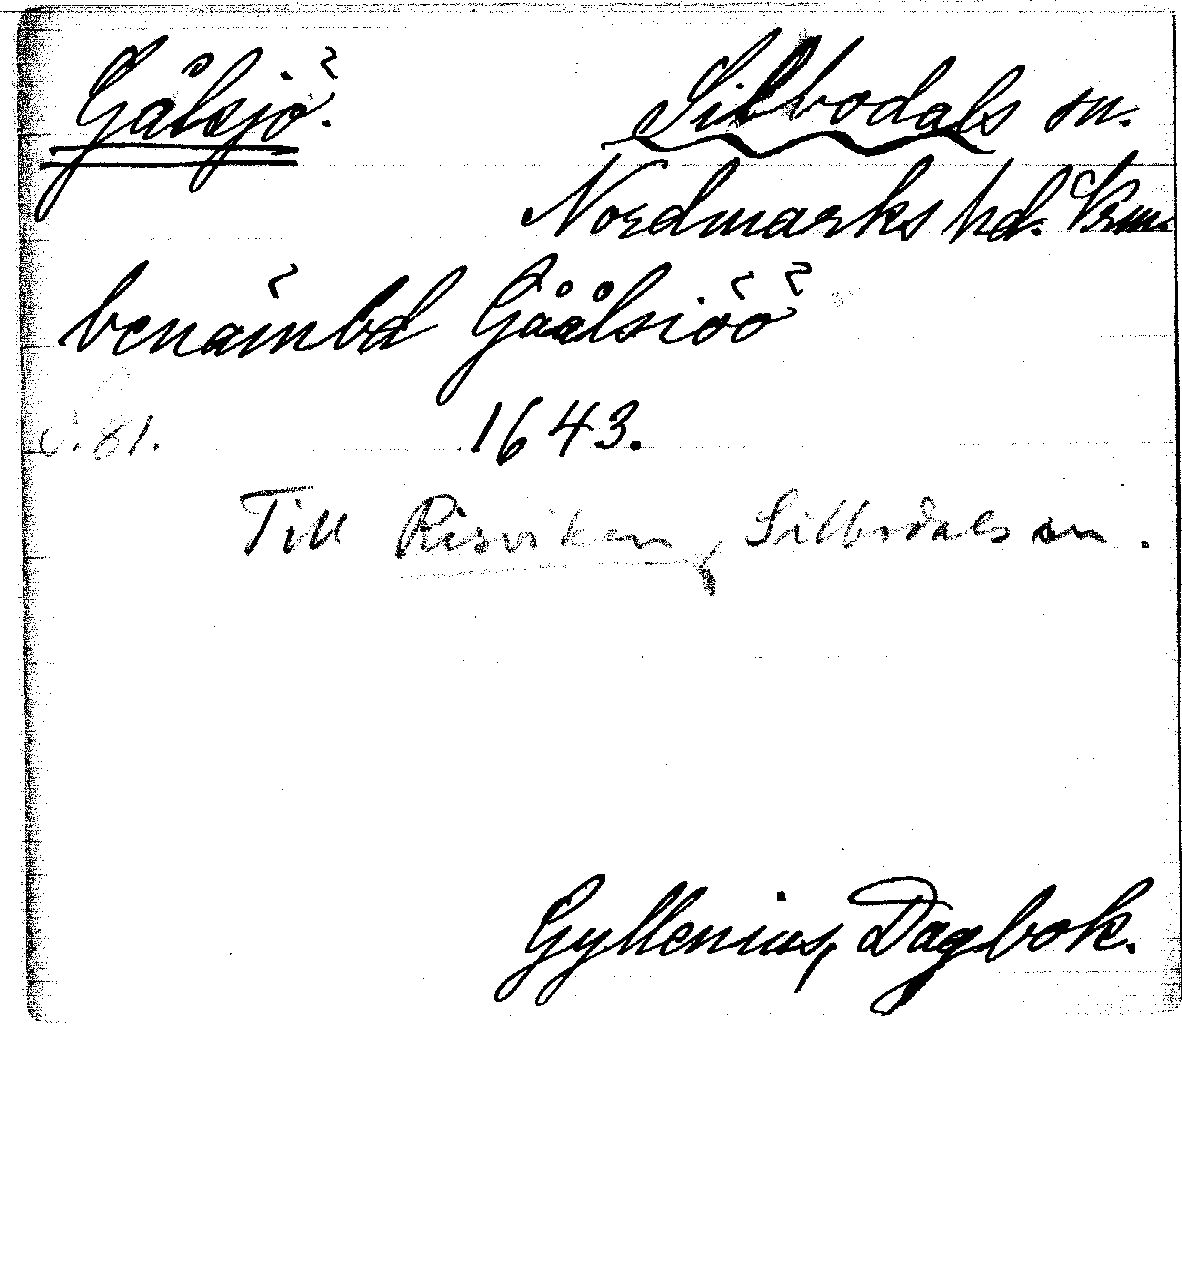 Gålsjö? Silbodals sn.
Nordmarks hd. Vrm.
benämbd Gåålsiöö
s. 81. 1643.
Till Risviken, Silbodals sn.
Gyllenius, Dagbok.